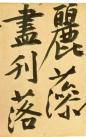 麗藻
盡刊落